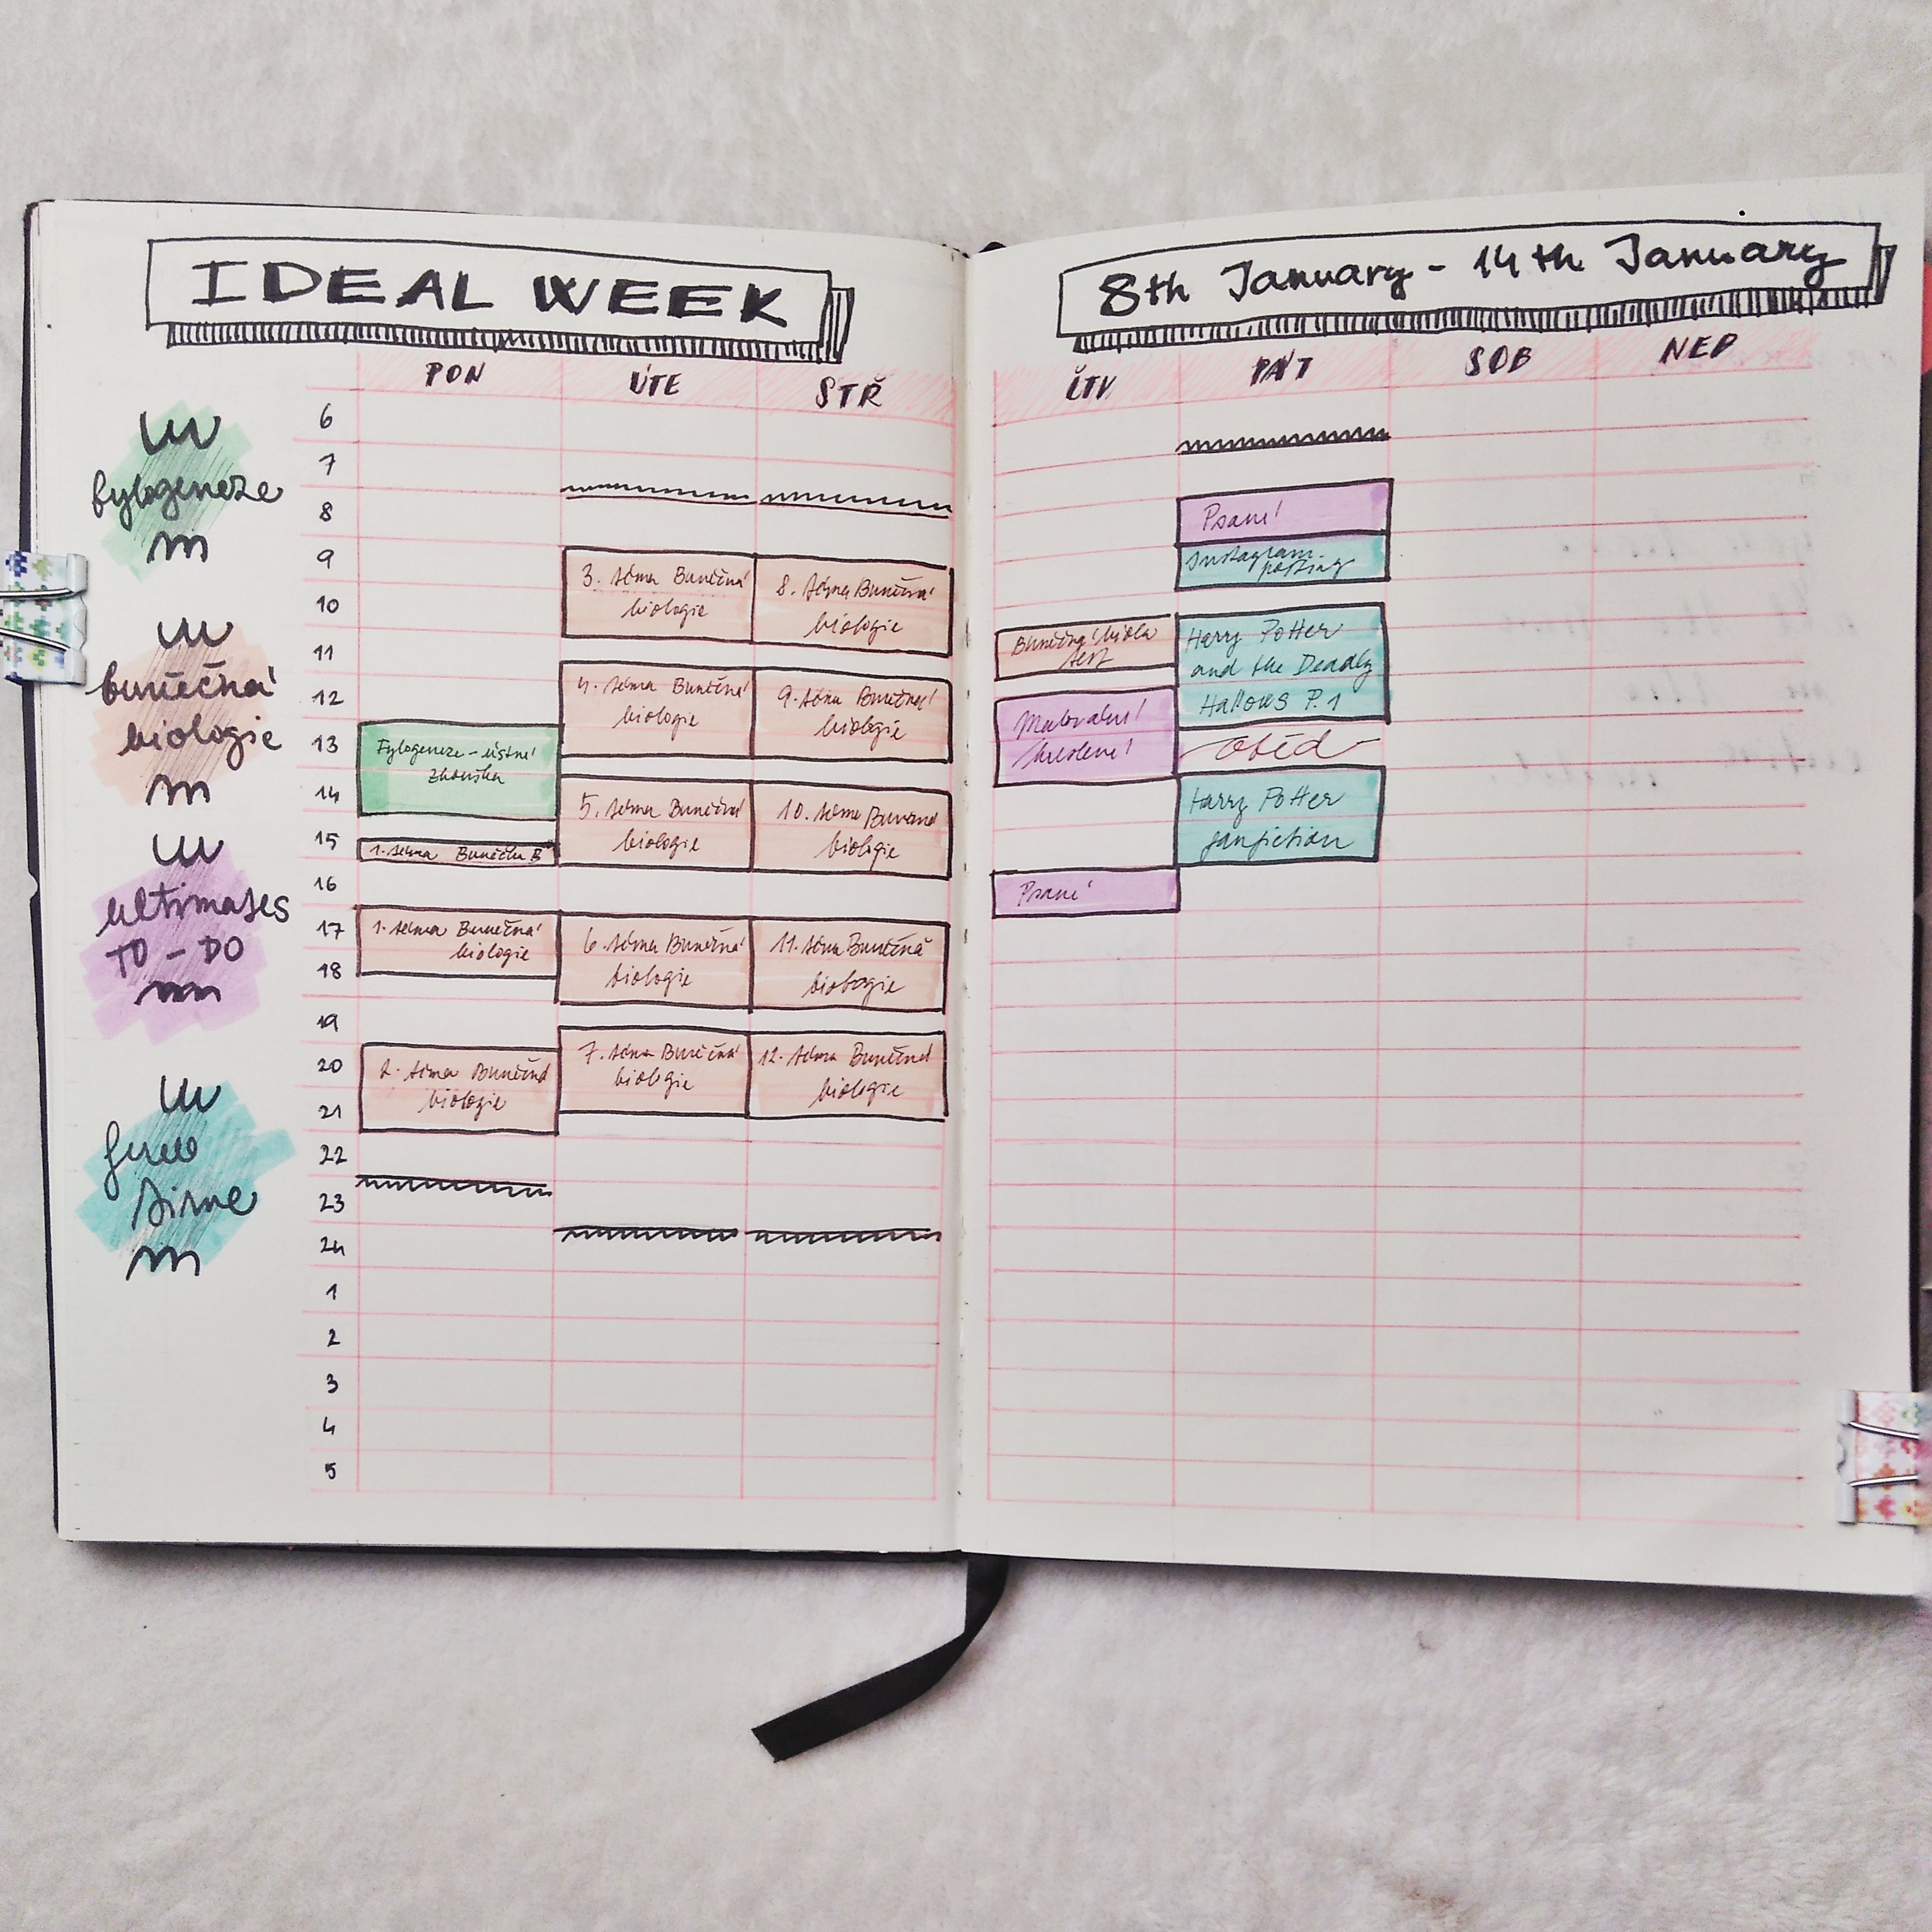 IDEAL WEEK
PON ÚTE STŘ
fylogeneze
buněčná
biologie
ultimates
TO-DO
6
7
8
9
10
11
12
13
14
15
16
17
18
19
20
21
22
23
24
1
2
3
4
5
Fylogeneze - ústní
zkouška
1. téma Buněčn B
1. téma Buněčná
biologie
2. téma Buněčná
biologie
3. téma Buněčná
biologie
4. téma Buněčná
biologie
5. téma Buněčná
biologie
6. téma Buněčná
biologie
7. téma Buněčná
biologie
8. téma Buněčná
biologie
9. téma Buněčná
biologie
10. téma Buněčná
biologie
11. téma Buněčná
biologie
12. téma Buněčná
biologie
8th January - 14th January
ČTV PÁT SOB NED
Buněčná biola
test
Malování
kreslení
Psaní
Psaní
Instagram-
posting
Harry Potter
and the Deadly
Hallows P.1
oběd
Harry Potter
fanfiction